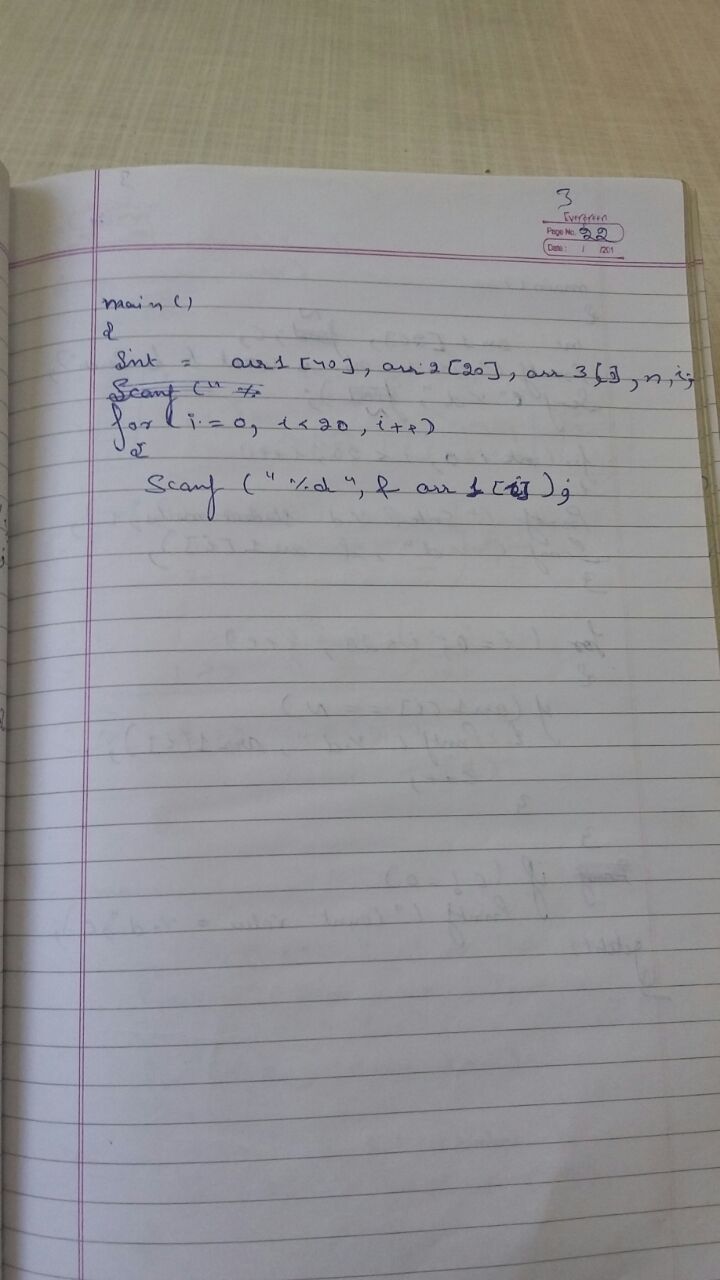 3
Evergreen
Page No. 22
Date: / /201
main()
{
int = arr1[40], arr2[20], arr3[], n, i;
Scanf ("%
for (i=0, i<20, i++)
{
Scanf ("%d", & arr1[i]);